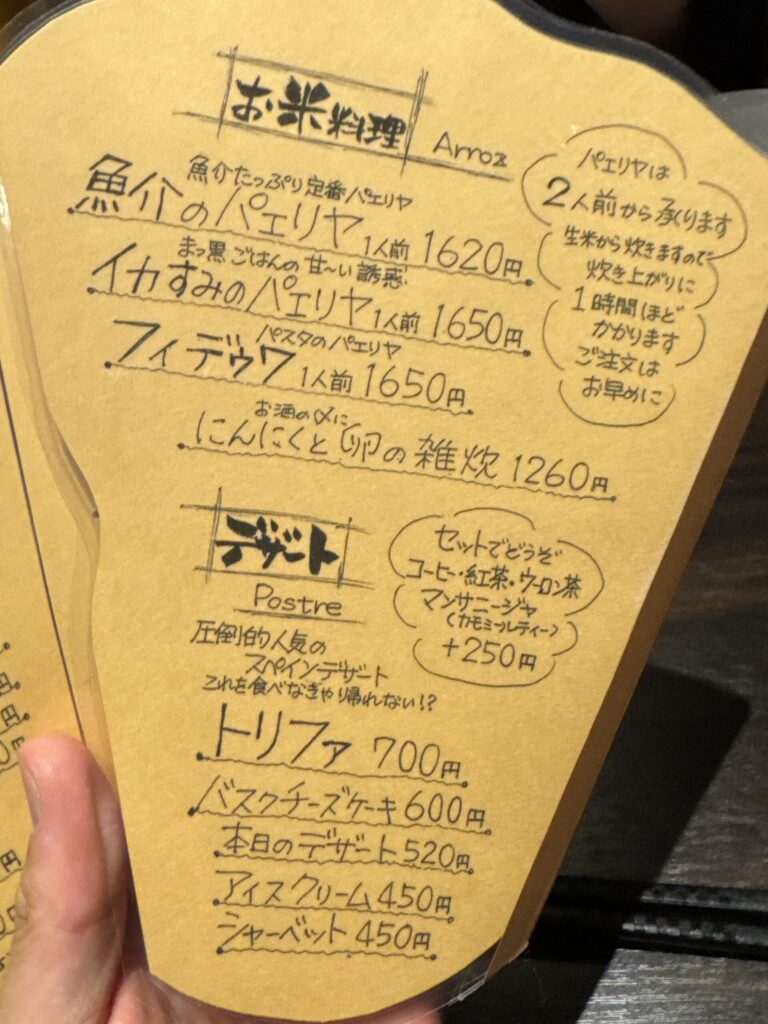 お米料理 Arroz
魚介たっぷり定番パエリヤ
魚介のパェリヤ 1人前 1620円
まっ黒ごはんの甘〜い誘惑
イカすみのパェリヤ 1人前 1650円
パスタのパェリヤ
フィデゥワ 1人前 1650円
お酒の〆に
にんにくと卵の雑炊 1260円
パェリヤは
2人前から承ります
生米から炊きますので
炊き上がりに
1時間ほど
かかります
ご注文は
お早めに
デザート
Postre
セットでどうぞ
コーヒー・紅茶・ウーロン茶
マンサニージャ
(カモミールティー)
+250円
圧倒的人気の
スペインデザート
これを食べなきゃ帰れない!?
トリファ 700円
バスクチーズケーキ 600円
本日のデザート 520円
アイスクリーム 450円
シャーベット 450円